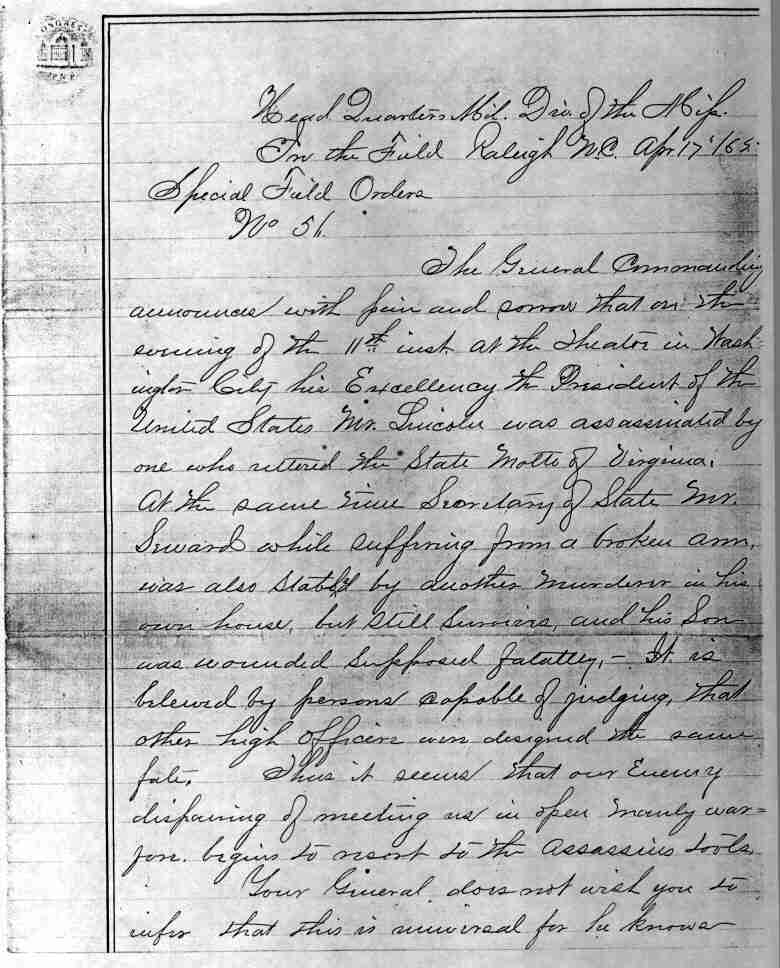 CONGRESS
Head Quarters Mil. Div. of the Miss.
In the Field Raleigh N.C. Apr. 17' /65.
Special Field Orders
No 56.
The General Commanding
announces with pain and sorrow that on the
evening of the 11th inst. at the theatre in Wash-
ington City his Excellency the President of the
United States Mr. Lincoln was assassinated by
one who uttered the State Motto of Virginia.
At the same time Secretary of State Mr.
Seward while suffering from a broken arm,
was also stabb'd by another murderer in his
own house, but still survives, and his Son
was wounded supposed fatally,- It is
beleived by persons capable of judging, that
other high officers were designed the same
fate. Thus it seems that our Enemy
dispairing of meeting us in open manly war=
fare. begins to resort to the Assassins tools.
Your General does not wish you to
infer that this is universal for he knows